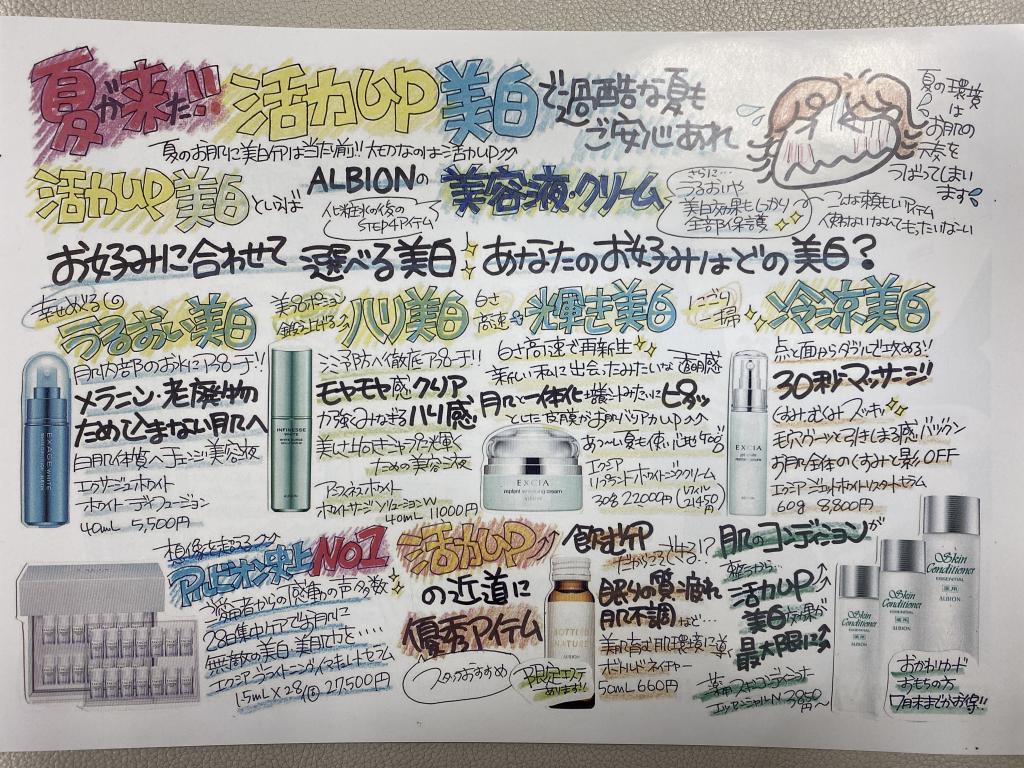 夏が来た!! 活力UP美白で過酷な夏も
ご安心あれ
夏のお肌に美白ケアは当たり前!! 大切なのは活力UP
夏の環境
は
お肌の
元気を
うばってしまい
ます
活力UP美白といえば
ALBIONの
化粧水の後の
STEP4アイテム
美容液・クリーム
さらに…
うるおいや
美白効果もしっかり
全部保護
使わないなんてもったいなーい
お好みに合わせて 選べる美白 あなたのお好みはどの美白?
幸せめぐる
うるおい美白
肌内部のお水にアプローチ!!
メラニン・老廃物
ためこまない肌へ
白肌体質へチェンジ美容液
エクサージュホワイト
ホワイトディフュージョン
40mL 5,500円
EXAGE WHITE
美白ポジション
ハリ美白
シミ予防へ徹底アプローチ!!
モヤモヤ感クリア
力強くみなぎるハリ感
ための美容液
アンフィネスホワイト
ホワイトサージソリューションW
40mL 11000円
INFINESSE
WHITE
ALBION
白さ
高速
輝き美白
白さ高速で再新生
新しい私に出会ったみたいな透明感
肌と一体化
ピタッ
あ〜夏も使い心地
エクシア
ホワイトニングクリーム
30g 22000円
EXCIA
ALBION
にごり
一掃
冷涼美白
点と面からダブルで攻める!!
30秒マッサージ!!
くすみむくみ スッキリ
毛穴キューッと引きしまる感 バツグン
お肌全体のくすみと影OFF
エクシア ジェットホワイトリスタートセラム
60g 8,800円
EXCIA
想像を超える
アルビオン史上 NO1
愛用者からの感動の声多数
28日集中ケアで当月に
無敵の美白、美肌力を…
エクシア ブライトニング イマキュレートセラム
1.5mL×28 27,500円
活力UP
の近道に
優秀アイテム
スタッフおすすめ
限定エステ
あります!!
BOTTLED
NATURE
ALBION
飲むケア
だからってできる!?
眠りの質・疲れ
肌不調など…
美肌育む肌環境に導く
ボトルド ネイチャー
50mL 660円
肌のコンディションが
整うから
活力UP
美白効果が
最大限に
薬用スキンコンディショナー
エッセンシャルN 3850
円〜
Skin
Conditioner
ESSENTIAL
ALBION
Skin
Conditioner
ESSENTIAL
ALBION
Skin
Conditioner
ESSENTIAL
ALBION
おかわりカード
おもちの方
7月末までがお得!!